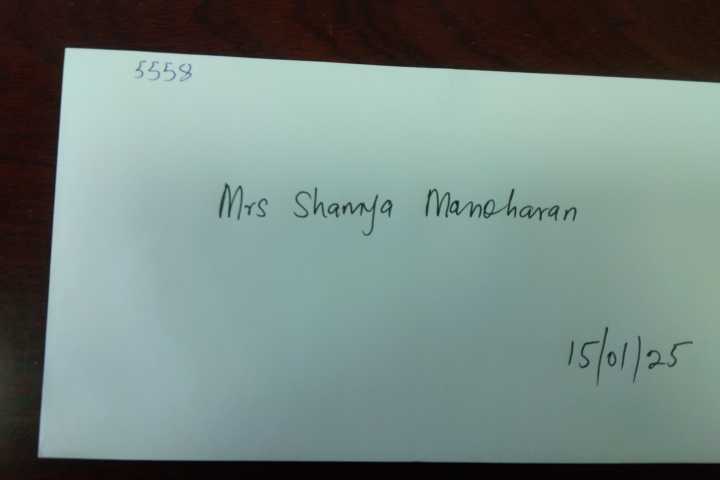 5558
Mrs Shannya Manoharan
15/01/25